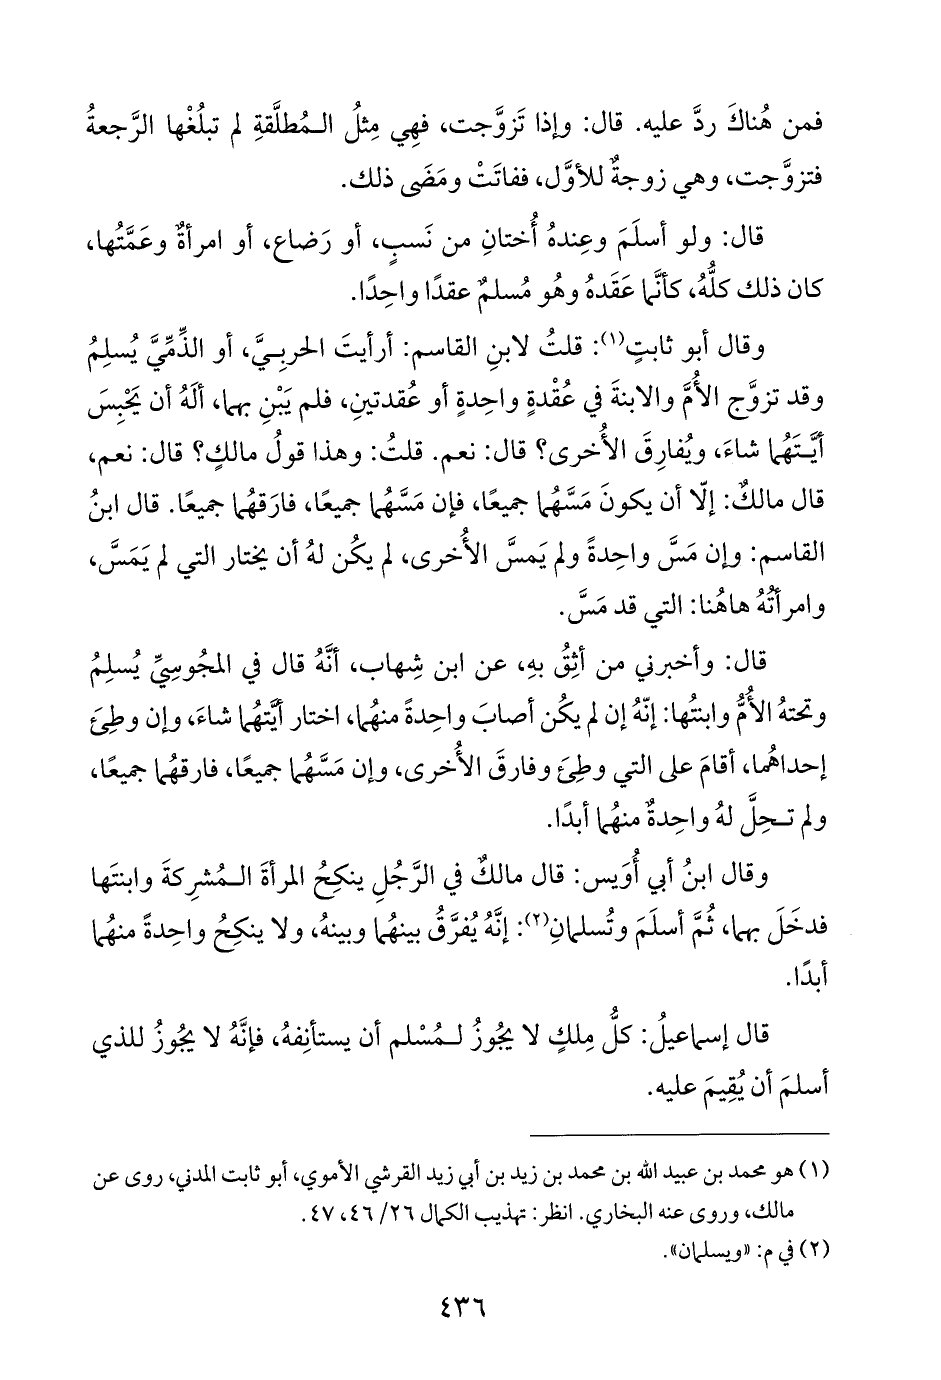 فمن هُناكَ ردَّ عليه. قال: وإذا تَزوَّجت، فهِي مِثلُ الـمُطلَّقةِ لم تبلُغْها الرَّجعةُ
فتزوَّجت، وهي زوجةٌ للأوَّل، ففاتَتْ ومَضَى ذلك.
قال: ولو أسلَمَ وعِندهُ أُختانِ من نَسبٍ، أو رَضاع، أو امرأةٌ وعَمَّتُها،
كان ذلك كلُّهُ، كأنَّما عَقَدهُ وهُو مُسلمٌ عقدًا واحِدًا.
وقال أبو ثابتٍ(١): قلتُ لابنِ القاسم: أرأيتَ الحربِـيَّ، أو الذِّمِّيَّ يُسلِمُ
وقد تزوَّج الأُمَّ والابنةَ في عُقْدةٍ واحِدةٍ أو عُقدتينِ، فلم يَبْنِ بهما، ألَهُ أن يَحْبِسَ
أيَّـتَهُما شاءَ، ويُفارِقَ الأُخرى؟ قال: نعم. قلتُ: وهذا قولُ مالكٍ؟ قال: نعم،
قال مالكٌ: إلّا أن يكونَ مَسَّهُما جميعًا، فإن مَسَّهُما جميعًا، فارَقهُما جميعًا. قال ابنُ
القاسم: وإن مَسَّ واحِدةً ولم يَمسَّ الأُخرى، لم يكُن لهُ أن يختار التي لم يَمَسَّ،
وامرأتُهُ هاهُنا: التي قد مَسَّ.
قال: وأخبرني من أثِقُ بهِ، عن ابن شِهاب، أنَّهُ قال في المجُوسِيِّ يُسلِمُ
وتحتهُ الأُمُّ وابنتُها: إنّهُ إن لم يكُن أصابَ واحِدةً منهُما، اختار أيَّتهُما شاءَ، وإن وطِئَ
إحداهُما، أقامَ على التي وطِئَ وفارقَ الأُخرى، وإن مَسَّهُما جميعًا، فارقهُما جميعًا،
ولم تـحِلَّ لهُ واحِدةٌ منهُما أبدًا.
وقال ابنُ أبي أُوَيس: قال مالكٌ في الرَّجُلِ ينكِحُ المرأةَ الـمُشرِكةَ وابنتَها
فدخَلَ بهما، ثُمَّ أسلَمَ وتُسلمانِ(٢): إنَّهُ يُفرَّقُ بينهُما وبينهُ، ولا ينكِحُ واحِدةً منهُما
أبدًا.
قال إسماعيلُ: كلُّ مِلكٍ لا يجُوزُ لـمُسْلم أن يستأنِفهُ، فإنَّهُ لا يجُوزُ للذي
أسلمَ أن يُقِيمَ عليه.
(١) هو محمد بن عبيد الله بن محمد بن زيد بن أبي زيد القرشي الأموي، أبو ثابت المدني، روى عن
مالك، وروى عنه البخاري. انظر: تهذيب الكمال ٢٦/ ٤٦، ٤٧.
(٢) في م: «ويسلمان».
٤٣٦